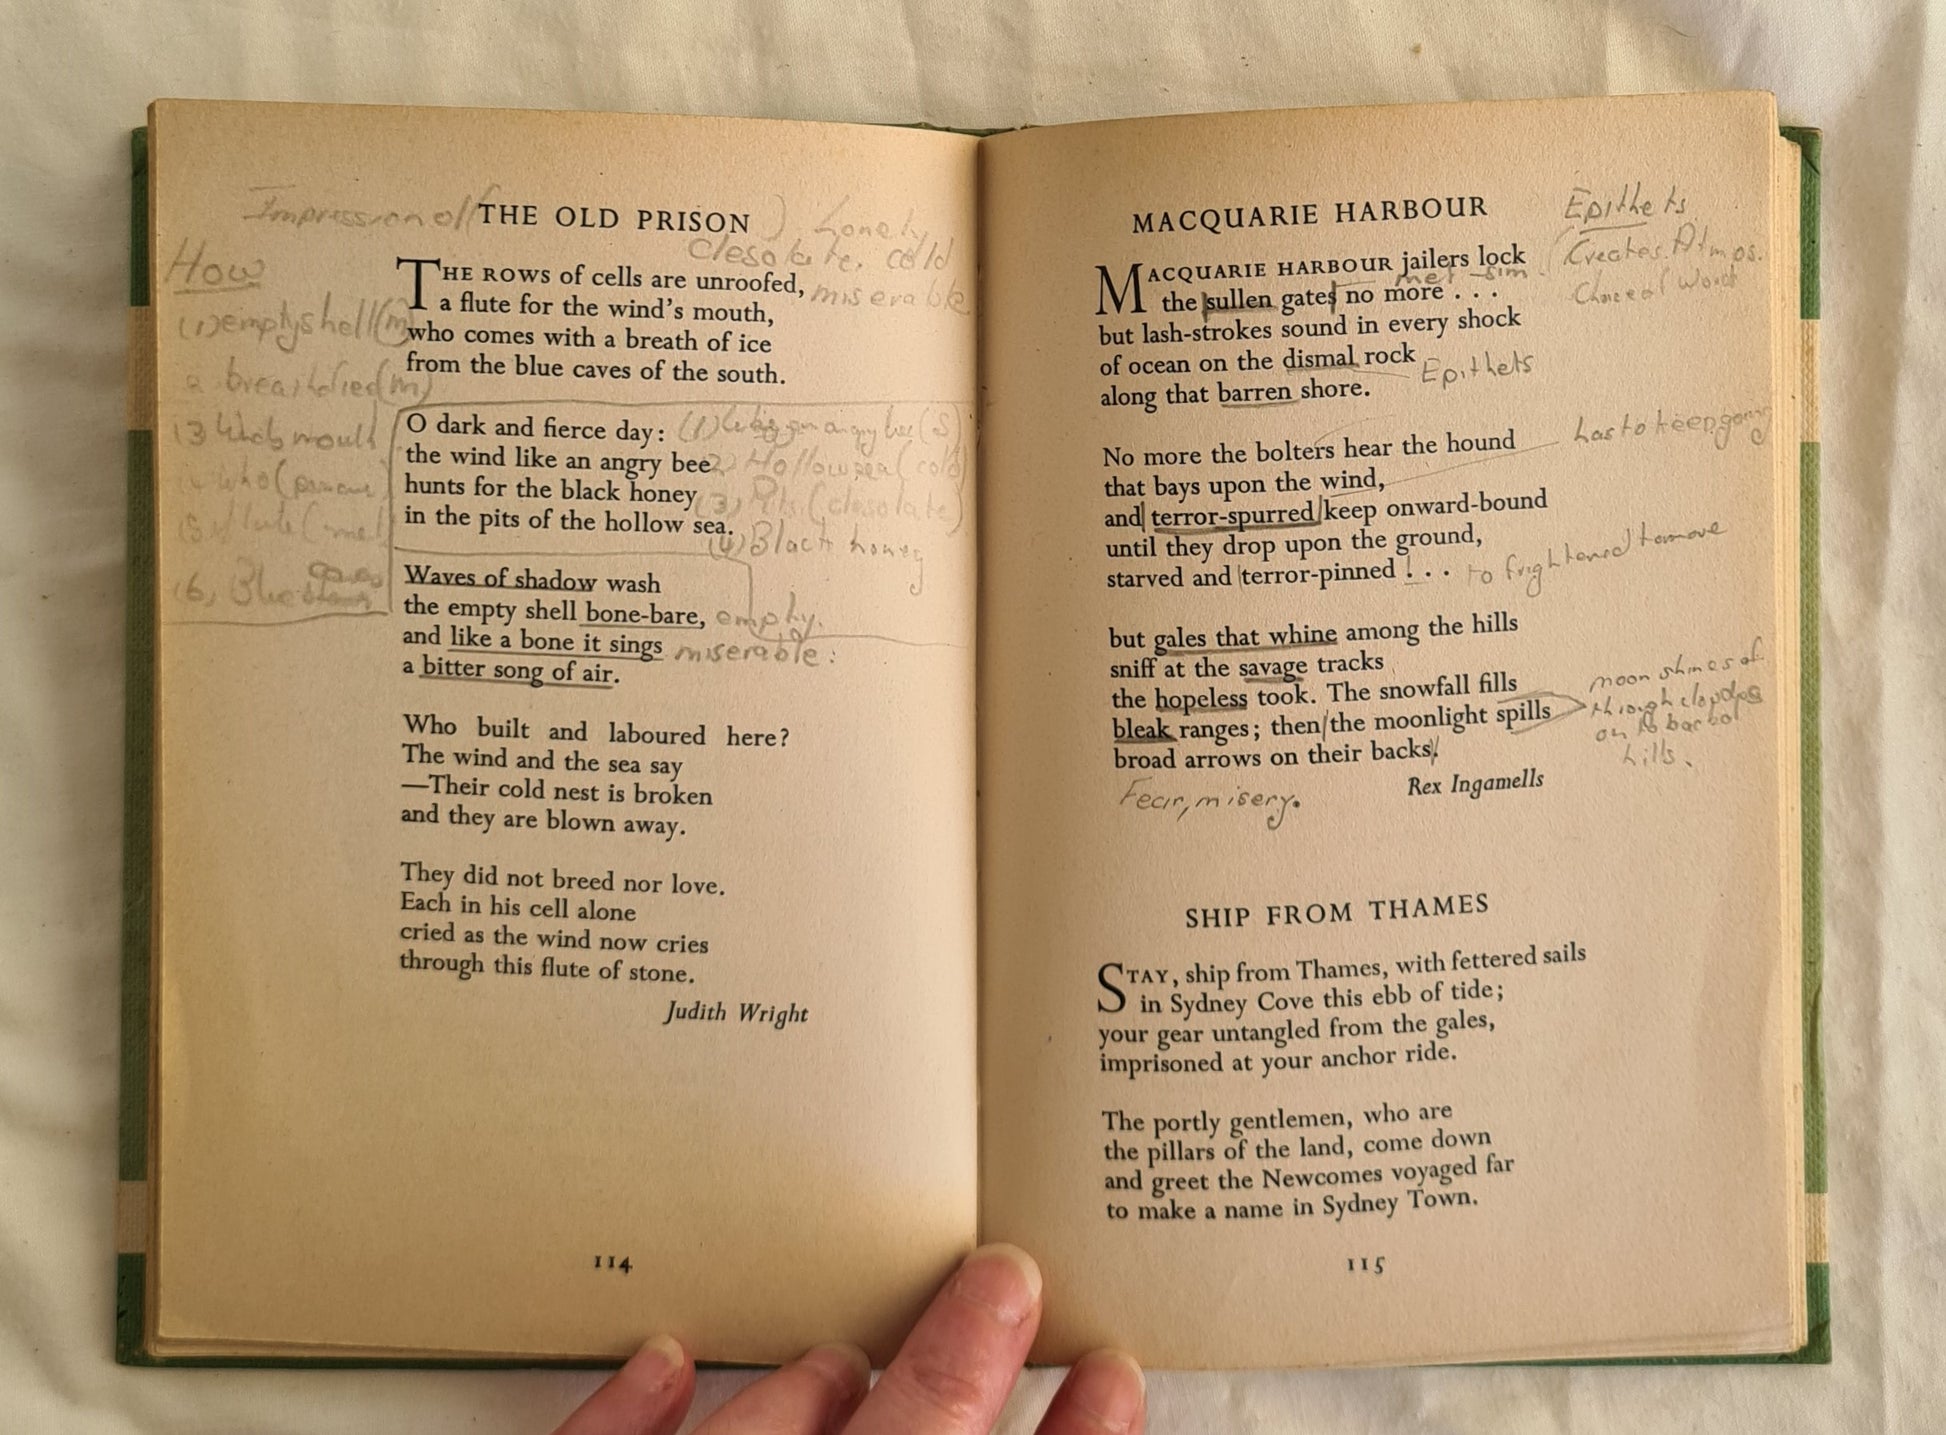 Impression of ( THE OLD PRISON ) lonely
desolate. cold
miserable
How
(1) empty shell (m)
THE ROWS of cells are unroofed,
a flute for the wind's mouth,
who comes with a breath of ice
from the blue caves of the south.
O dark and fierce day:
the wind like an angry bee
hunts for the black honey
in the pits of the hollow sea.
(4) Black honey
Waves of shadow wash
the empty shell bone-bare, empty.
and like a bone it sings miserable:
a bitter song of air.
Who built and laboured here?
The wind and the sea say
—Their cold nest is broken
and they are blown away.
They did not breed nor love.
Each in his cell alone
cried as the wind now cries
through this flute of stone.
Judith Wright
114
MACQUARIE HARBOUR
Epithets
Creates Atmos.
Choice of Word
MACQUARIE HARBOUR jailers lock
met - sim
the sullen gates no more . . .
but lash-strokes sound in every shock
of ocean on the dismal rock
Epithets
along that barren shore.
No more the bolters hear the hound
has to keep going
that bays upon the wind,
and terror-spurred keep onward-bound
until they drop upon the ground,
starved and terror-pinned . . . to frightened to move
but gales that whine among the hills
sniff at the savage tracks
the hopeless took. The snowfall fills
bleak ranges; then the moonlight spills
broad arrows on their backs.
moon shines
through
on
hills.
Rex Ingamells
Fear, misery.
SHIP FROM THAMES
STAY, ship from Thames, with fettered sails
in Sydney Cove this ebb of tide;
your gear untangled from the gales,
imprisoned at your anchor ride.
The portly gentlemen, who are
the pillars of the land, come down
and greet the Newcomes voyaged far
to make a name in Sydney Town.
115